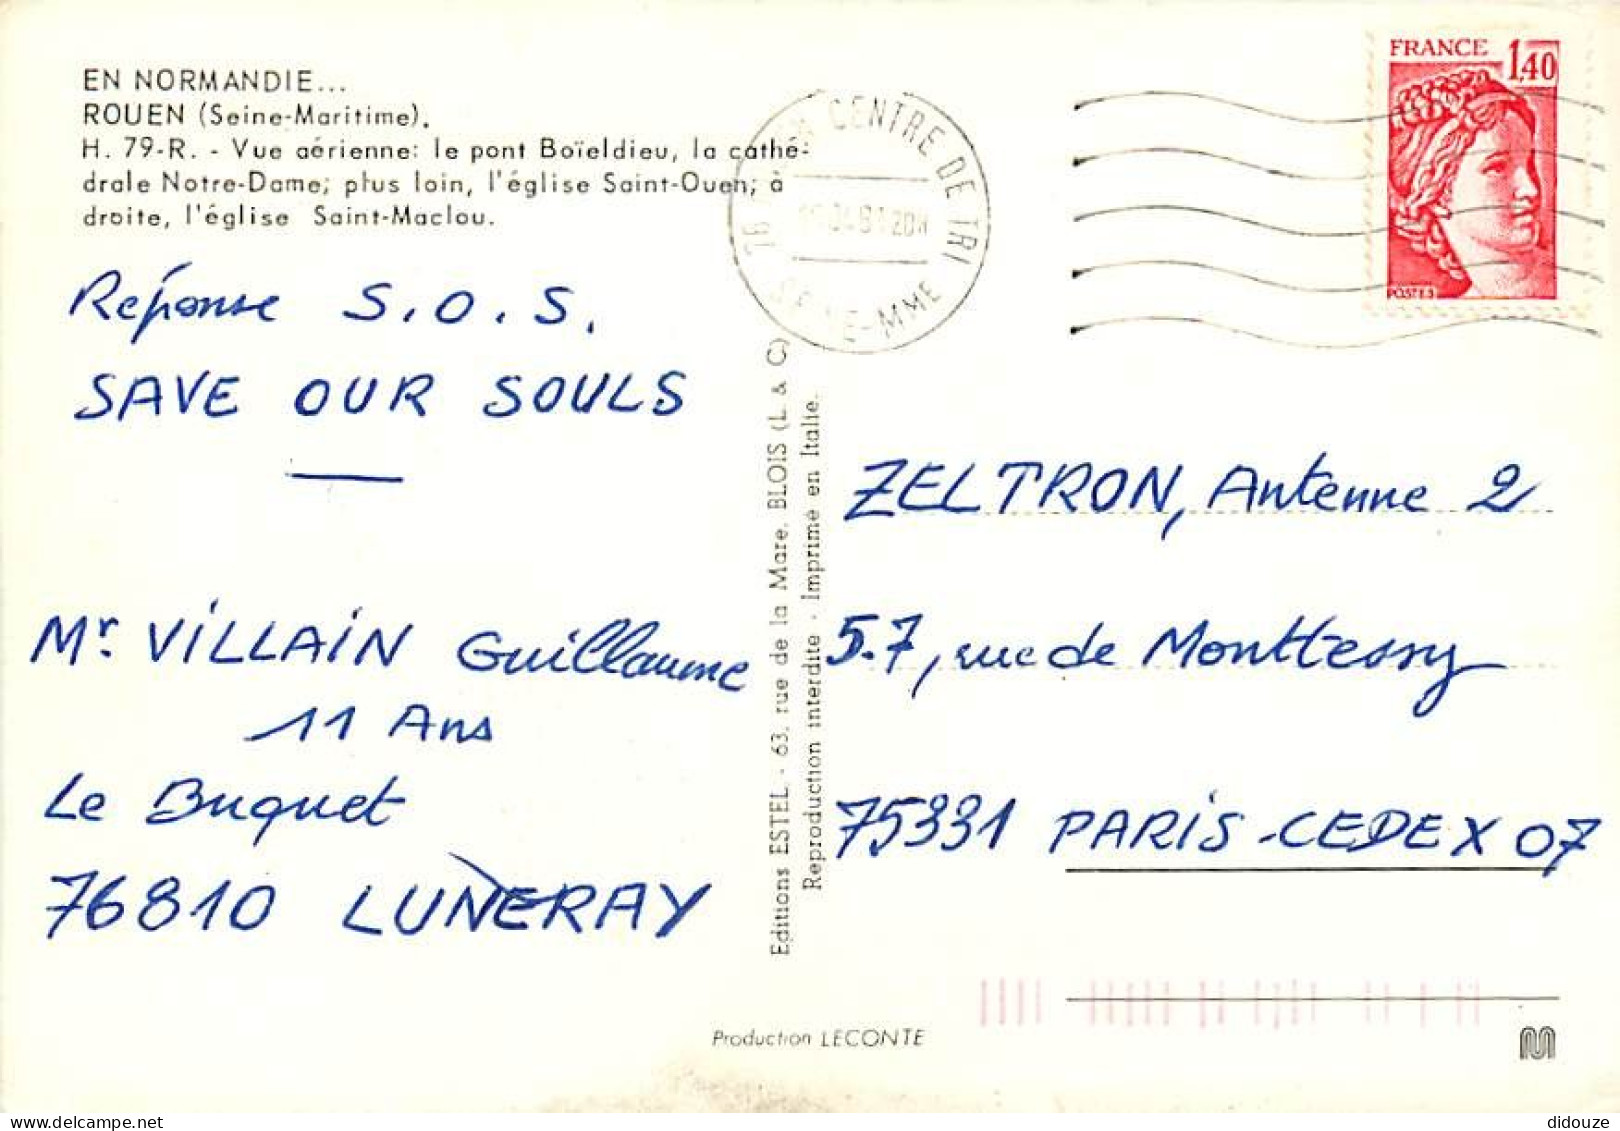 EN NORMANDIE...
ROUEN (Seine-Maritime).
H. 79-R. - Vue aérienne: le pont Boïeldieu, la cathé-
drale Notre-Dame; plus loin, l'église Saint-Ouen; à
droite, l'église Saint-Maclou.
Réponse S.O.S.
SAVE OUR SOULS
Mr. VILLAIN Guillaume
11 Ans
Le Buquet
76810 LUNERAY
Editions ESTEL - 63, rue de la Mare, BLOIS (L. & C)
Reproduction interdite - Imprimé en Italie.
Production LECONTE
CENTRE DE TRI
76
SEINE-MME
FRANCE
1,40
POSTES
ZELTRON, Antenne 2
5.7, rue de Monttessy
75331 PARIS-CEDEX 07
didouze